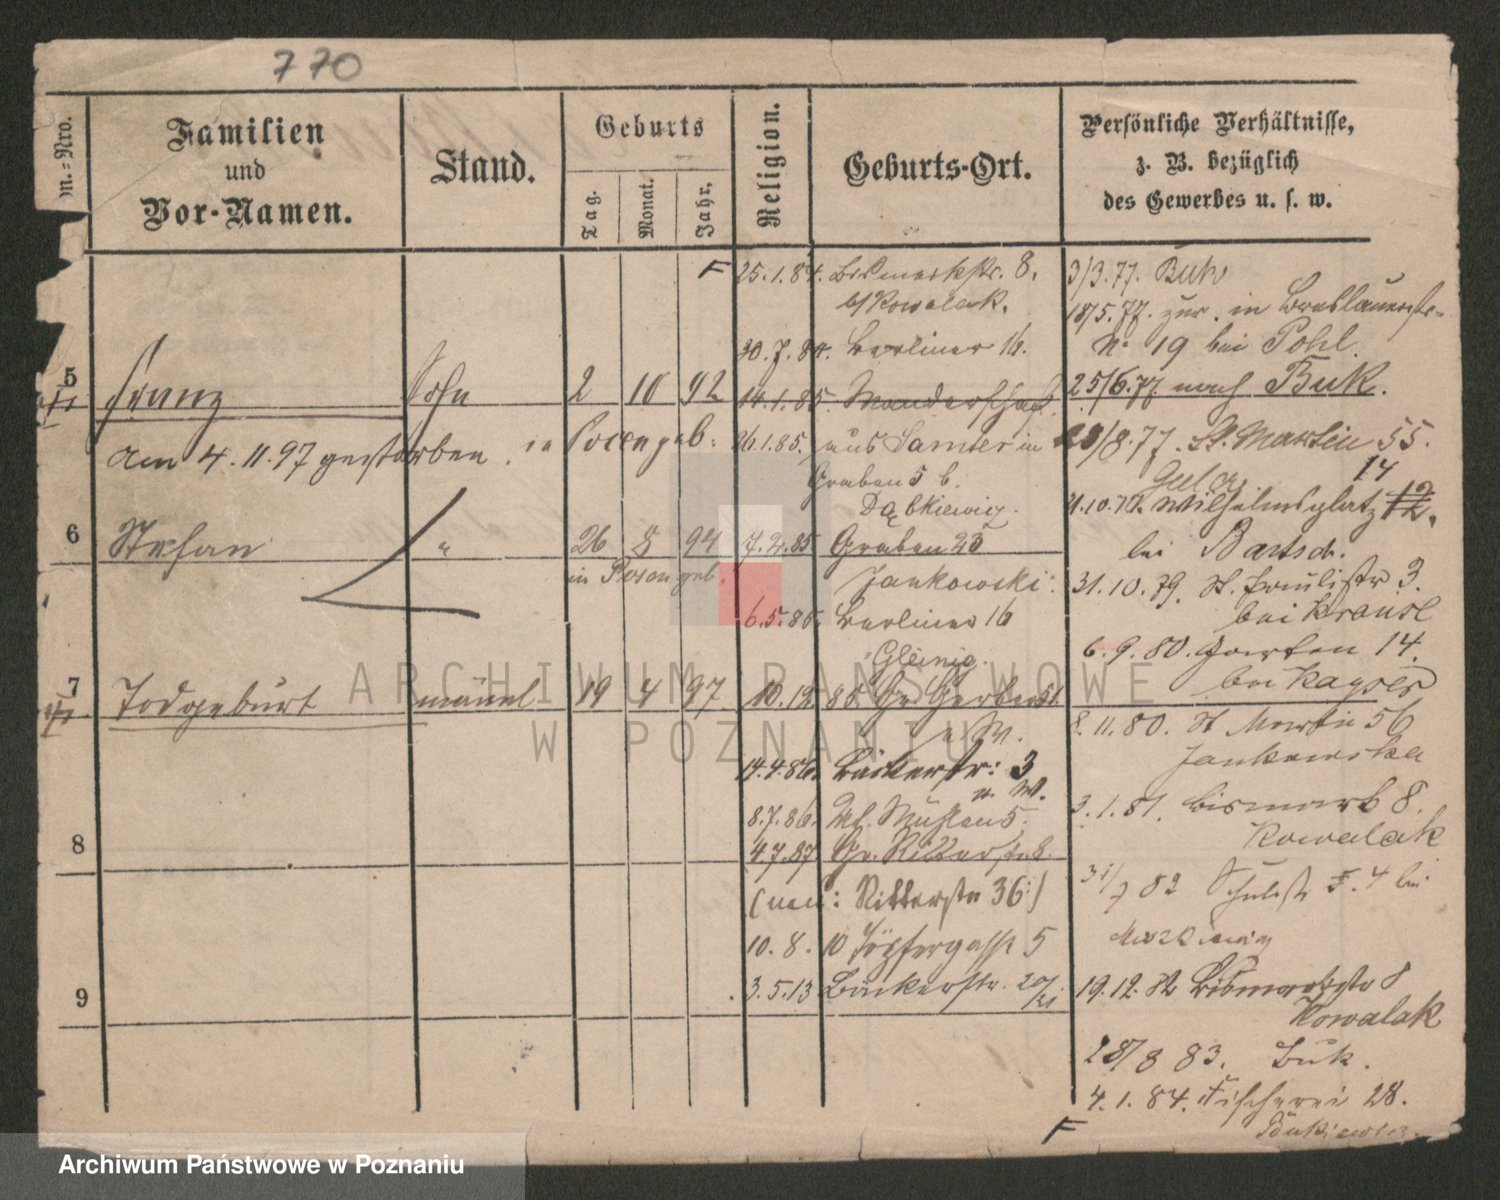 770
m.=Nro.
Familien
und
Vor-Namen.
Stand.
Geburts
Tag.
Monat.
Jahr.
Religion.
Geburts-Ort.
Persönliche Verhältnisse,
z. B. bezüglich
des Gewerbes u. s. w.
5
Franz
Sohn
2 10 92
am 4.11.97 gestorben. in Posen geb.
6
Stefan
"
26 8 94
in Posen geb.
7
Todgeburt
männl
19 4 97
8
9
F 25.1.84. Bismarckstr. 8.
b/ Kowalak.
30.7.84. Berliner 16.
14.1.85. Wanderschaft
26.1.85. aus Samter in
Graben 5 b.
Dąbkiewicz.
7.2.85 Graben 25
Jankowski:
6.5.85. Berliner 16
Gleinig.
10.12 85 Gr Gerberst
n W.
14.4.86. Bäckerstr: 3
n. W.
8.7.86. Mühlen 5.
4 7.87 Gr. Ritterstr 8.
(neu: Ritterstr 36:)
10. 8. 10 Töpfergasse 5
3.5.13 Bäckerstr. 20/21
3/3.77. Buk
18/5.77. zur. in Breslauerstr=
No 19 bei Pohl.
25/6.77 nach Buk.
28/8.77. St. Martin 55.
14
Wilhelmsplatz 12.
bei Bartsch.
31.10.79. St. Paulistr 3.
bei Krause
6.9.80. Garten 14.
bei Kayser
8.11.80. St Martin 56
Jankowska
3.1.81. Bismark 8.
Kowalak
31/7 82 Schulstr 4 bei
19.12.82 Bismarckstr 8
Kowalak
28/8 83. Buk.
4.1.84. Fischerei 28.
F
ARCHIWUM PAŃSTWOWE
W POZNANIU
Archiwum Państwowe w Poznaniu